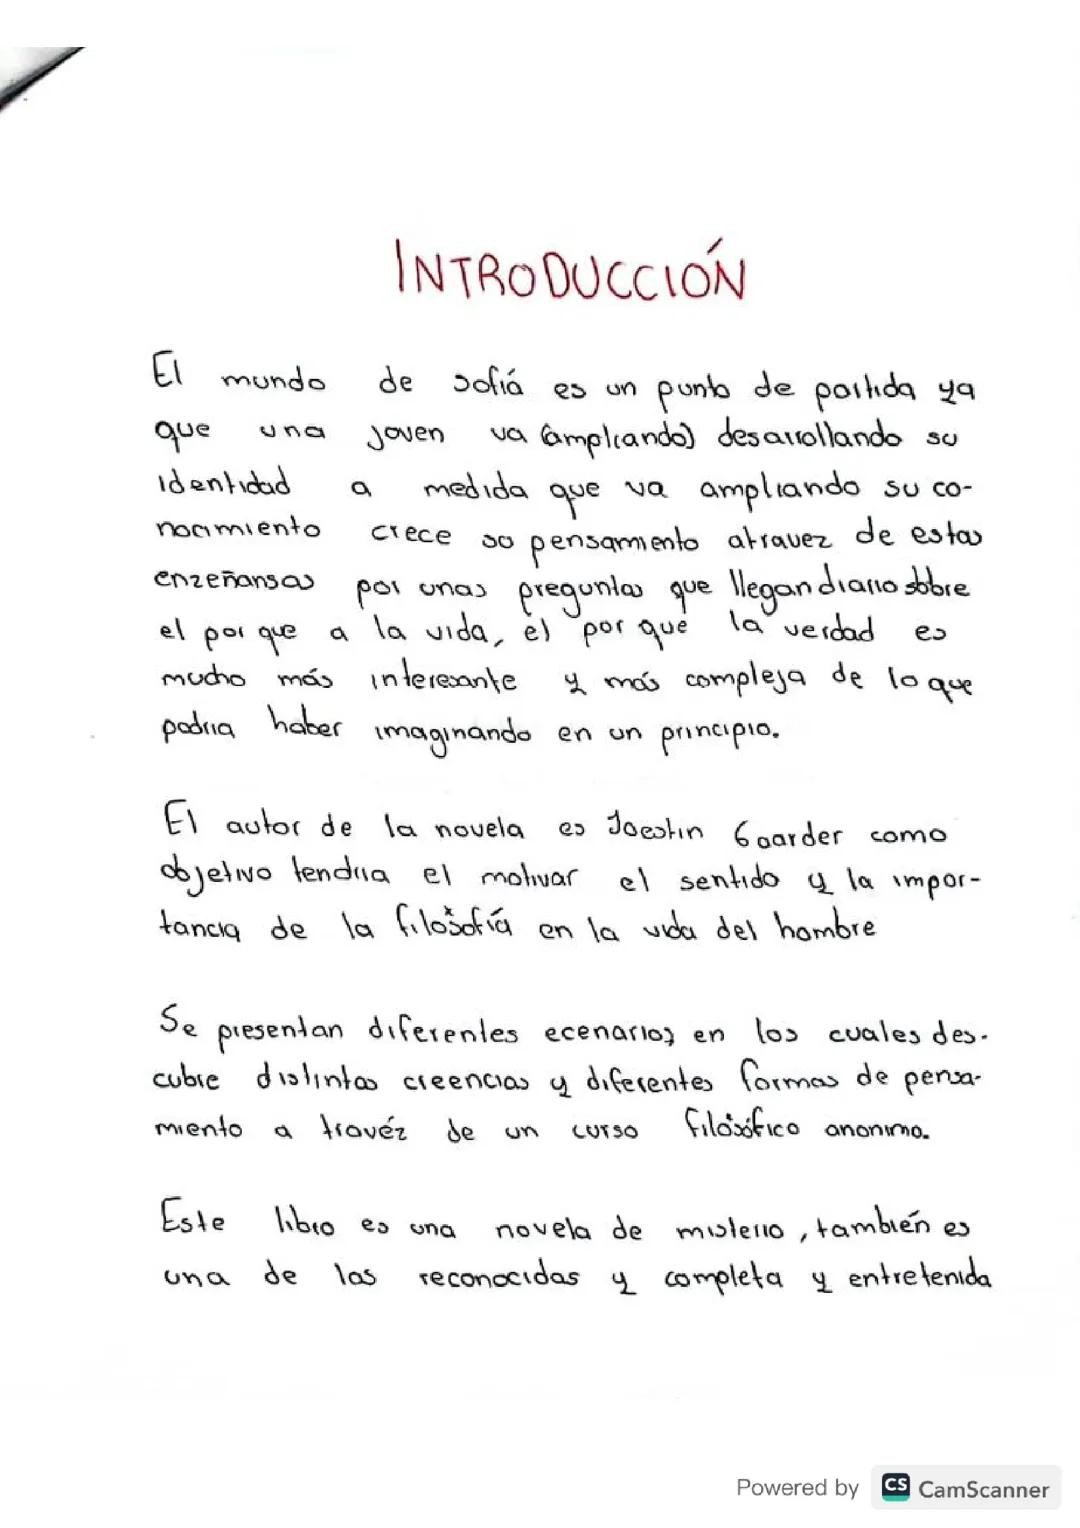 INTRODUCCIÓN
El mundo de sofiá es un punto de partida ya
que una joven va (ampliando) desarrollando su
identidad a medida que va ampliando su co-
nocimiento crece so pensamiento atravez de estas
enzeñansas por unas preguntas que llegan diario sobre
el por que a la vida, el por que la verdad es
mucho más interesante y más compleja de lo que
podria haber imaginando en un principio.
El autor de la novela es Joestin Gaarder como
objetivo tendria el motivar el sentido y la impor-
tancia de la filosofía en la vida del hombre
Se presentan diferentes ecenarios en los cuales des-
cubre distintas creencias y diferentes formas de pensa-
miento a travéz de un curso filosófico anonimo.
Este libro es una novela de misterio, también es
una de las reconocidas y completa y entretenida
Powered by CS CamScanner